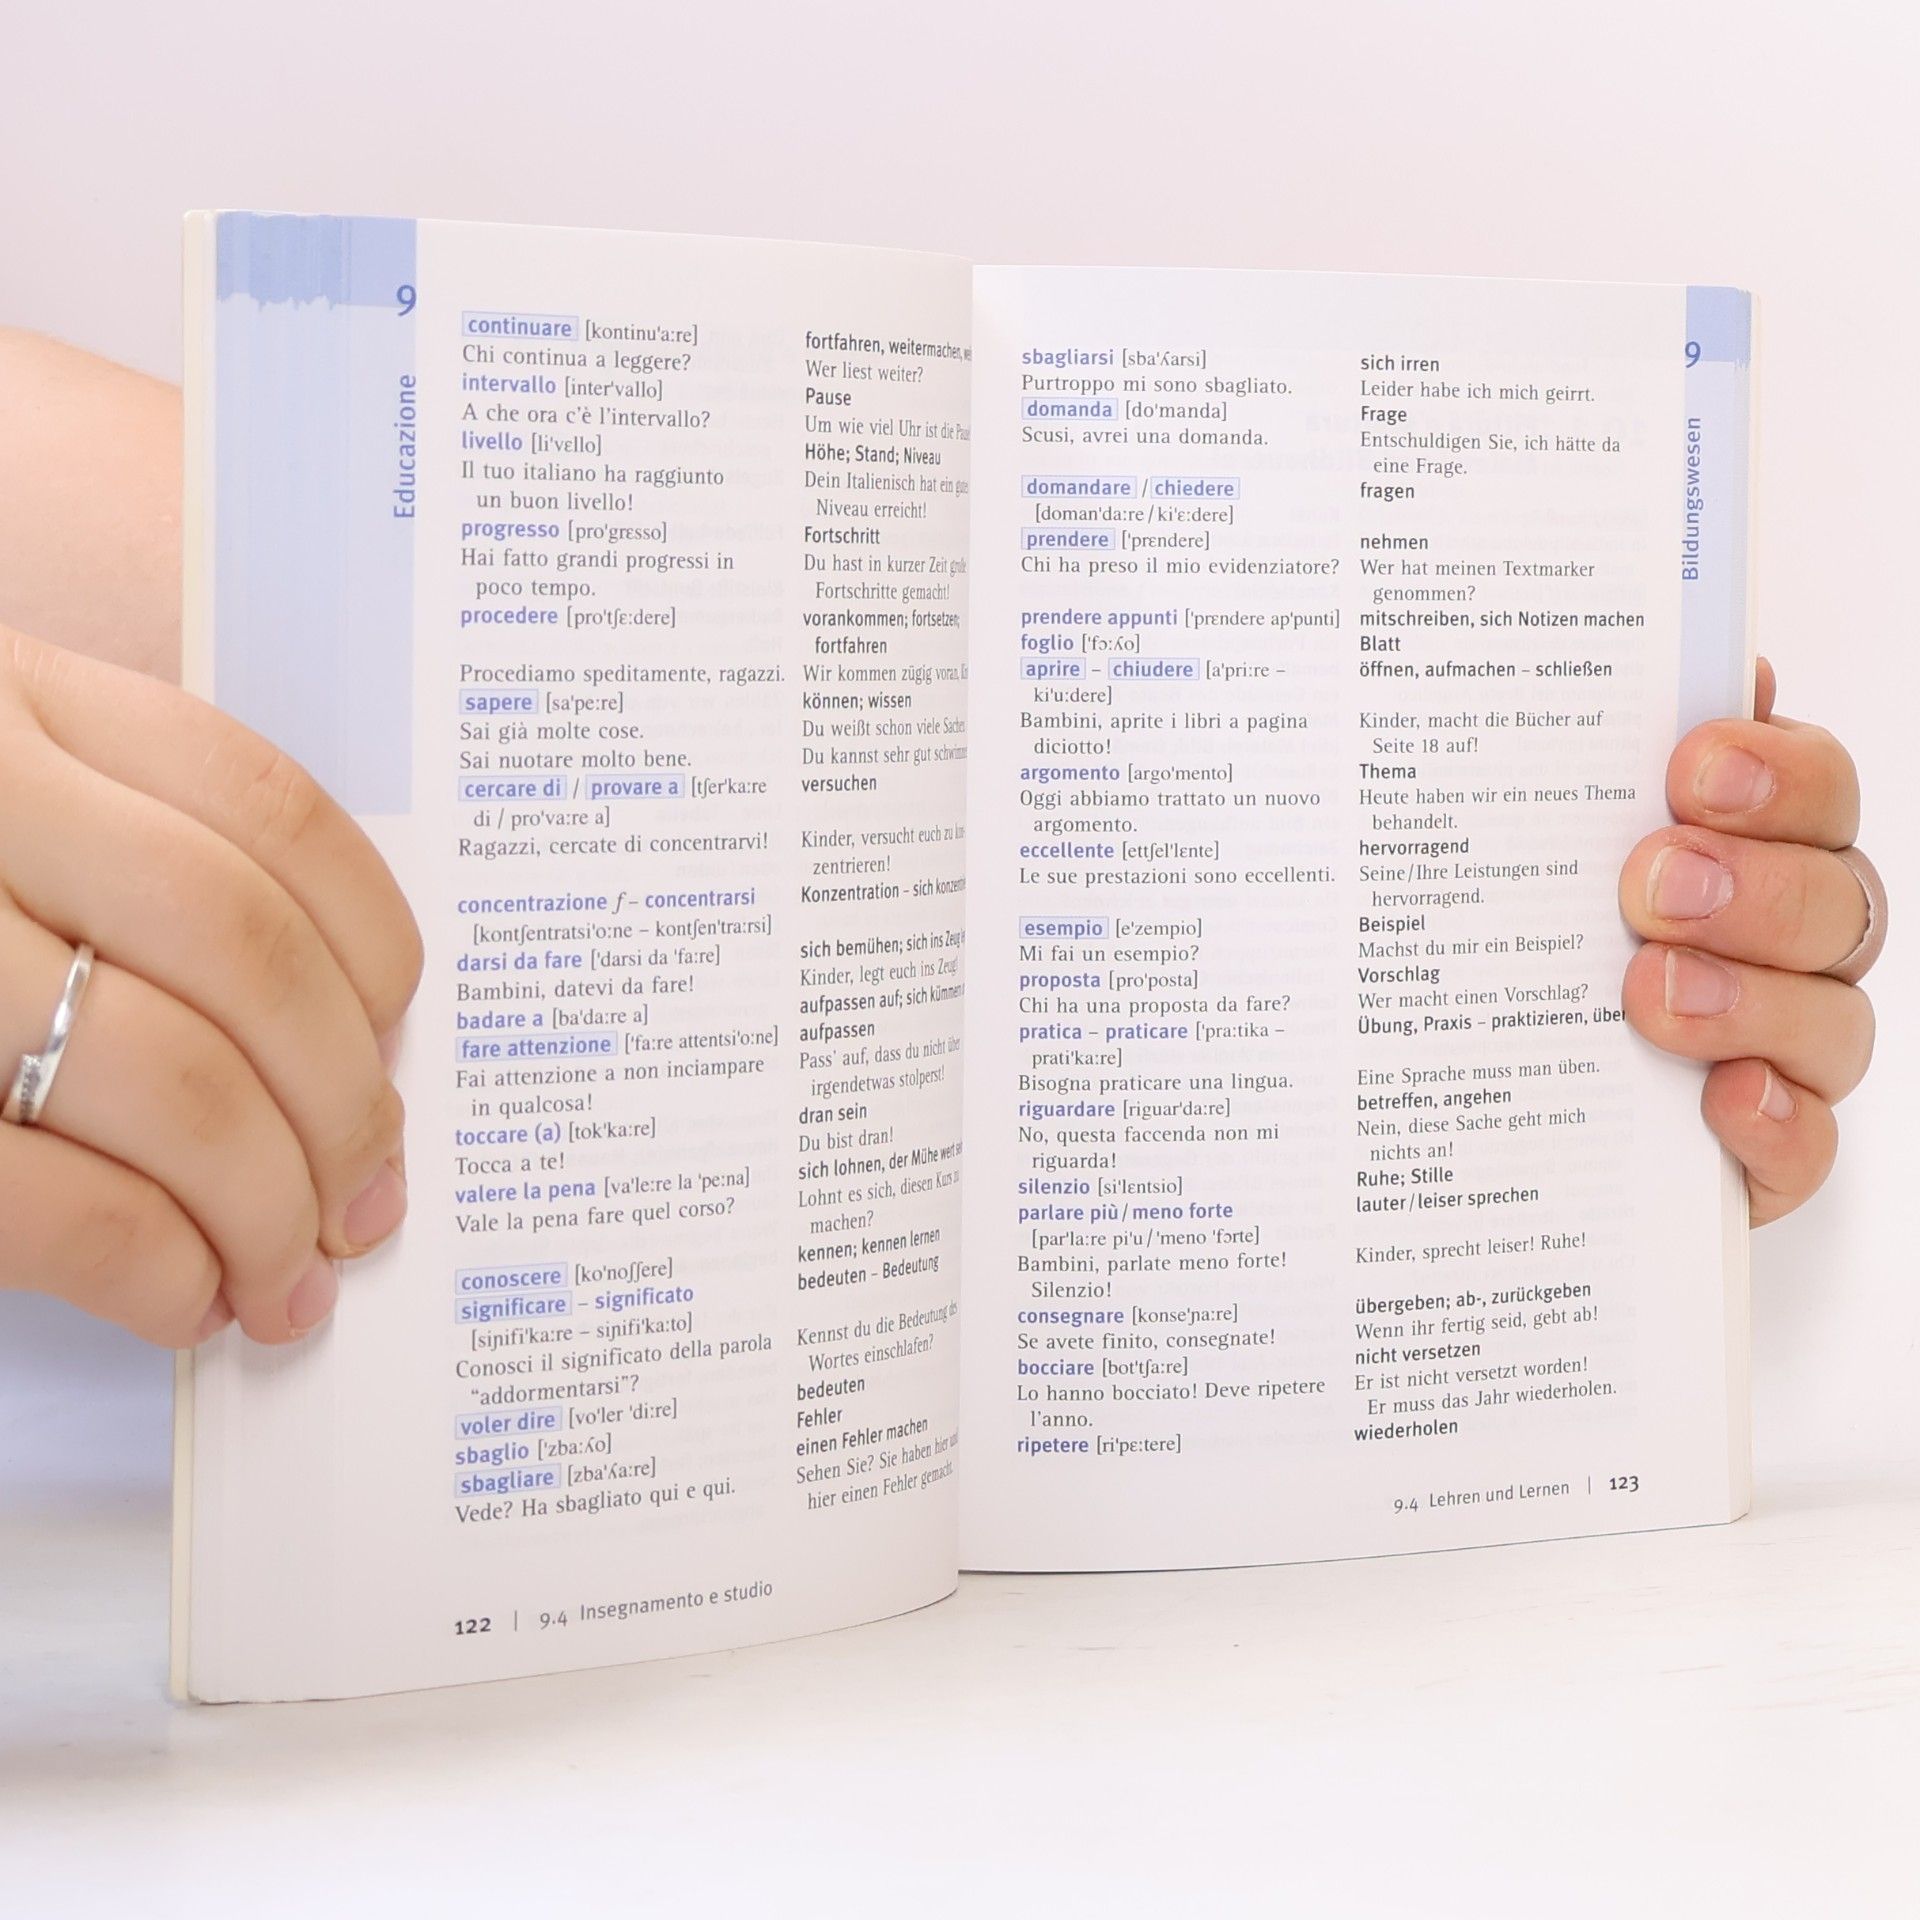 9
Educazione
continuare [kontinu'a:re]
Chi continua a leggere?
intervallo [inter'vallo]
A che ora c'è l'intervallo?
livello [li'vɛllo]
Il tuo italiano ha raggiunto
un buon livello!
progresso [pro'grɛsso]
Hai fatto grandi progressi in
poco tempo.
procedere [pro'tʃɛ:dere]
Procediamo speditamente, ragazzi.
sapere [sa'pe:re]
Sai già molte cose.
Sai nuotare molto bene.
cercare di / provare a [tʃer'ka:re
di / pro'va:re a]
Ragazzi, cercate di concentrarvi!
concentrazione f – concentrarsi
[kontʃentratsi'o:ne – kontʃen'tra:rsi]
darsi da fare ['darsi da 'fa:re]
Bambini, datevi da fare!
badare a [ba'da:re a]
fare attenzione ['fa:re attentsi'o:ne]
Fai attenzione a non inciampare
in qualcosa!
toccare (a) [tok'ka:re]
Tocca a te!
valere la pena [va'le:re la 'pe:na]
Vale la pena fare quel corso?
conoscere [ko'noʃʃere]
significare – significato
[siɲifi'ka:re – siɲifi'ka:to]
Conosci il significato della parola
“addormentarsi”?
voler dire [vo'ler 'di:re]
sbaglio ['zba:ʎo]
sbagliare [zba'ʎa:re]
Vede? Ha sbagliato qui e qui.
fortfahren, weitermachen,
Wer liest weiter?
Pause
Um wie viel Uhr ist die
Höhe; Stand; Niveau
Dein Italienisch hat ein
Niveau erreicht!
Fortschritt
Du hast in kurzer Zeit
Fortschritte gemacht!
vorankommen; fortsetzen;
fortfahren
Wir kommen zügig voran,
können; wissen
Du weißt schon viele
Du kannst sehr gut
versuchen
Kinder, versucht euch zu
zentrieren!
Konzentration – sich
sich bemühen; sich ins Zeug
Kinder, legt euch ins Zeug!
aufpassen auf; sich
aufpassen
Pass' auf, dass du nicht über
irgendetwas stolperst!
dran sein
Du bist dran!
sich lohnen, der Mühe wert
Lohnt es sich, diesen Kurs zu
machen?
kennen; kennen lernen
bedeuten – Bedeutung
Kennst du die Bedeutung des
Wortes einschlafen?
bedeuten
Fehler
einen Fehler machen
Sehen Sie? Sie haben hier und
hier einen Fehler gemacht.
122 | 9.4 Insegnamento e studio
sbagliarsi [sba'ʎarsi]
Purtroppo mi sono sbagliato.
domanda [do'manda]
Scusi, avrei una domanda.
domandare / chiedere
[doman'da:re / ki'ɛ:dere]
prendere ['prɛndere]
Chi ha preso il mio evidenziatore?
prendere appunti ['prɛndere ap'punti]
foglio ['fɔ:ʎo]
aprire – chiudere [a'pri:re –
ki'u:dere]
Bambini, aprite i libri a pagina
diciotto!
argomento [argo'mento]
Oggi abbiamo trattato un nuovo
argomento.
eccellente [ettʃel'lɛnte]
Le sue prestazioni sono eccellenti.
esempio [e'zempio]
Mi fai un esempio?
proposta [pro'posta]
Chi ha una proposta da fare?
pratica – praticare ['pra:tika –
prati'ka:re]
Bisogna praticare una lingua.
riguardare [riguar'da:re]
No, questa faccenda non mi
riguarda!
silenzio [si'lɛntsio]
parlare più / meno forte
[par'la:re pi'u / 'meno 'fɔrte]
Bambini, parlate meno forte!
Silenzio!
consegnare [konse'ɲa:re]
Se avete finito, consegnate!
bocciare [bot'tʃa:re]
Lo hanno bocciato! Deve ripetere
l'anno.
ripetere [ri'pɛ:tere]
sich irren
Leider habe ich mich geirrt.
Frage
Entschuldigen Sie, ich hätte da
eine Frage.
fragen
nehmen
Wer hat meinen Textmarker
genommen?
mitschreiben, sich Notizen machen
Blatt
öffnen, aufmachen – schließen
Kinder, macht die Bücher auf
Seite 18 auf!
Thema
Heute haben wir ein neues Thema
behandelt.
hervorragend
Seine/Ihre Leistungen sind
hervorragend.
Beispiel
Machst du mir ein Beispiel?
Vorschlag
Wer macht einen Vorschlag?
Übung, Praxis – praktizieren,
Eine Sprache muss man üben.
betreffen, angehen
Nein, diese Sache geht mich
nichts an!
Ruhe; Stille
lauter/leiser sprechen
Kinder, sprecht leiser! Ruhe!
übergeben; ab-, zurückgeben
Wenn ihr fertig seid, gebt ab!
nicht versetzen
Er ist nicht versetzt worden!
Er muss das Jahr wiederholen.
wiederholen
9
Bildungswesen
9.4 Lehren und Lernen | 123